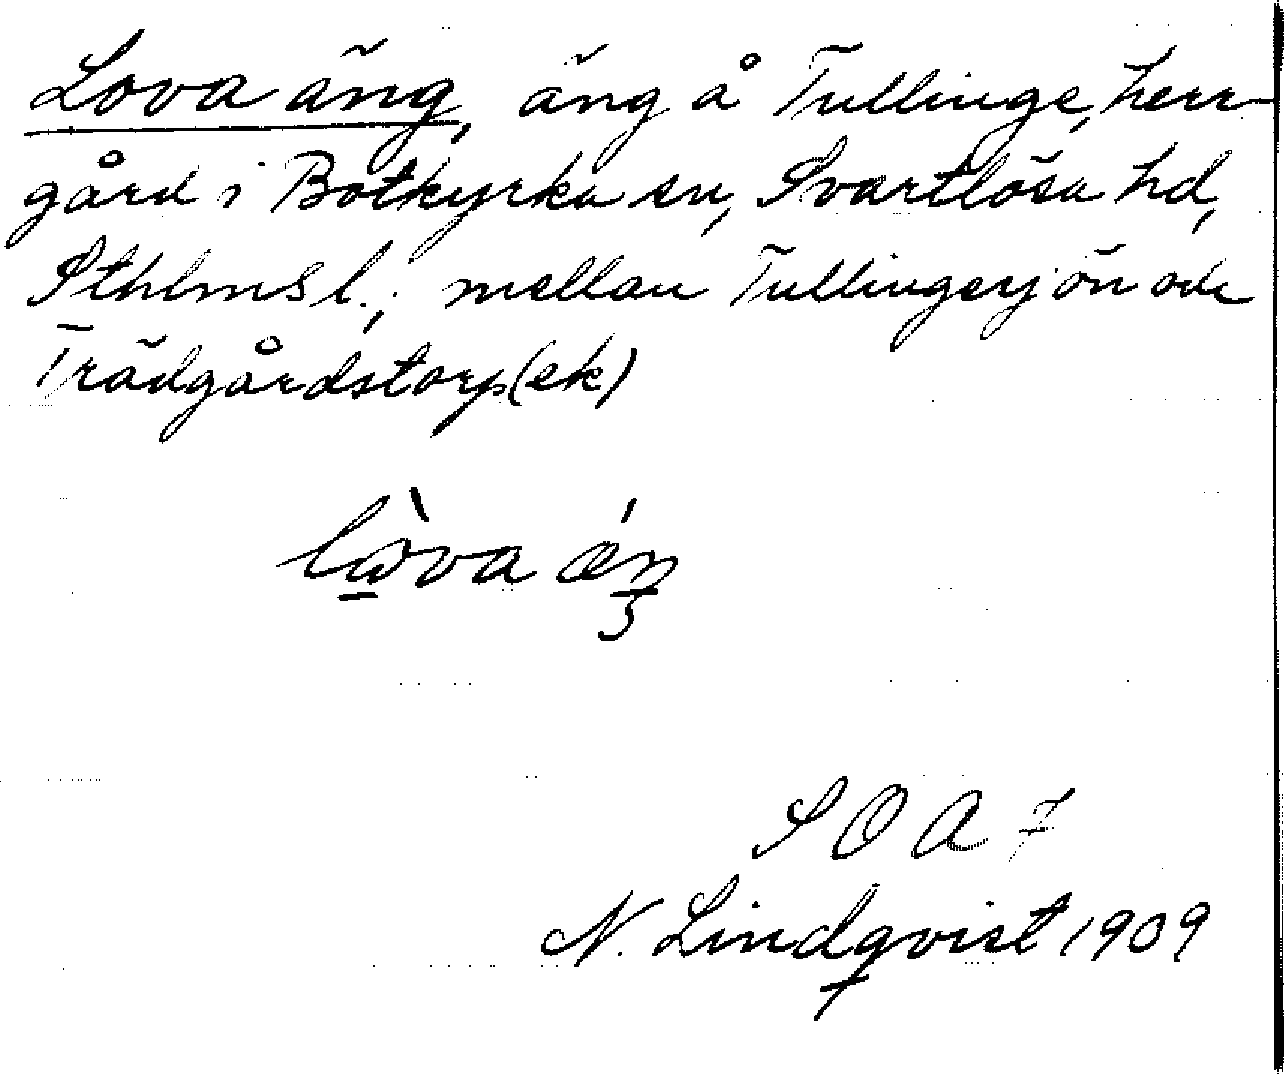 Lova äng, äng å Tullinge, herr-
gård i Botkyrka sn, Svartlösa hd,
Sthlms l., mellan Tullingesjön och
Trädgårdstorp (ek)
SOA 7
N. Lindqvist 1909